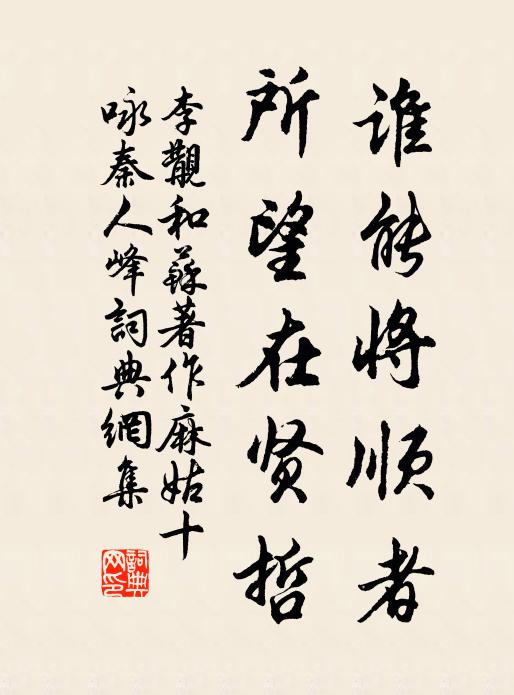 谁能将顺者
所望在贤哲
李觀和蘇著作麻姑十
咏秦人峰詞典網集
詞典
网印